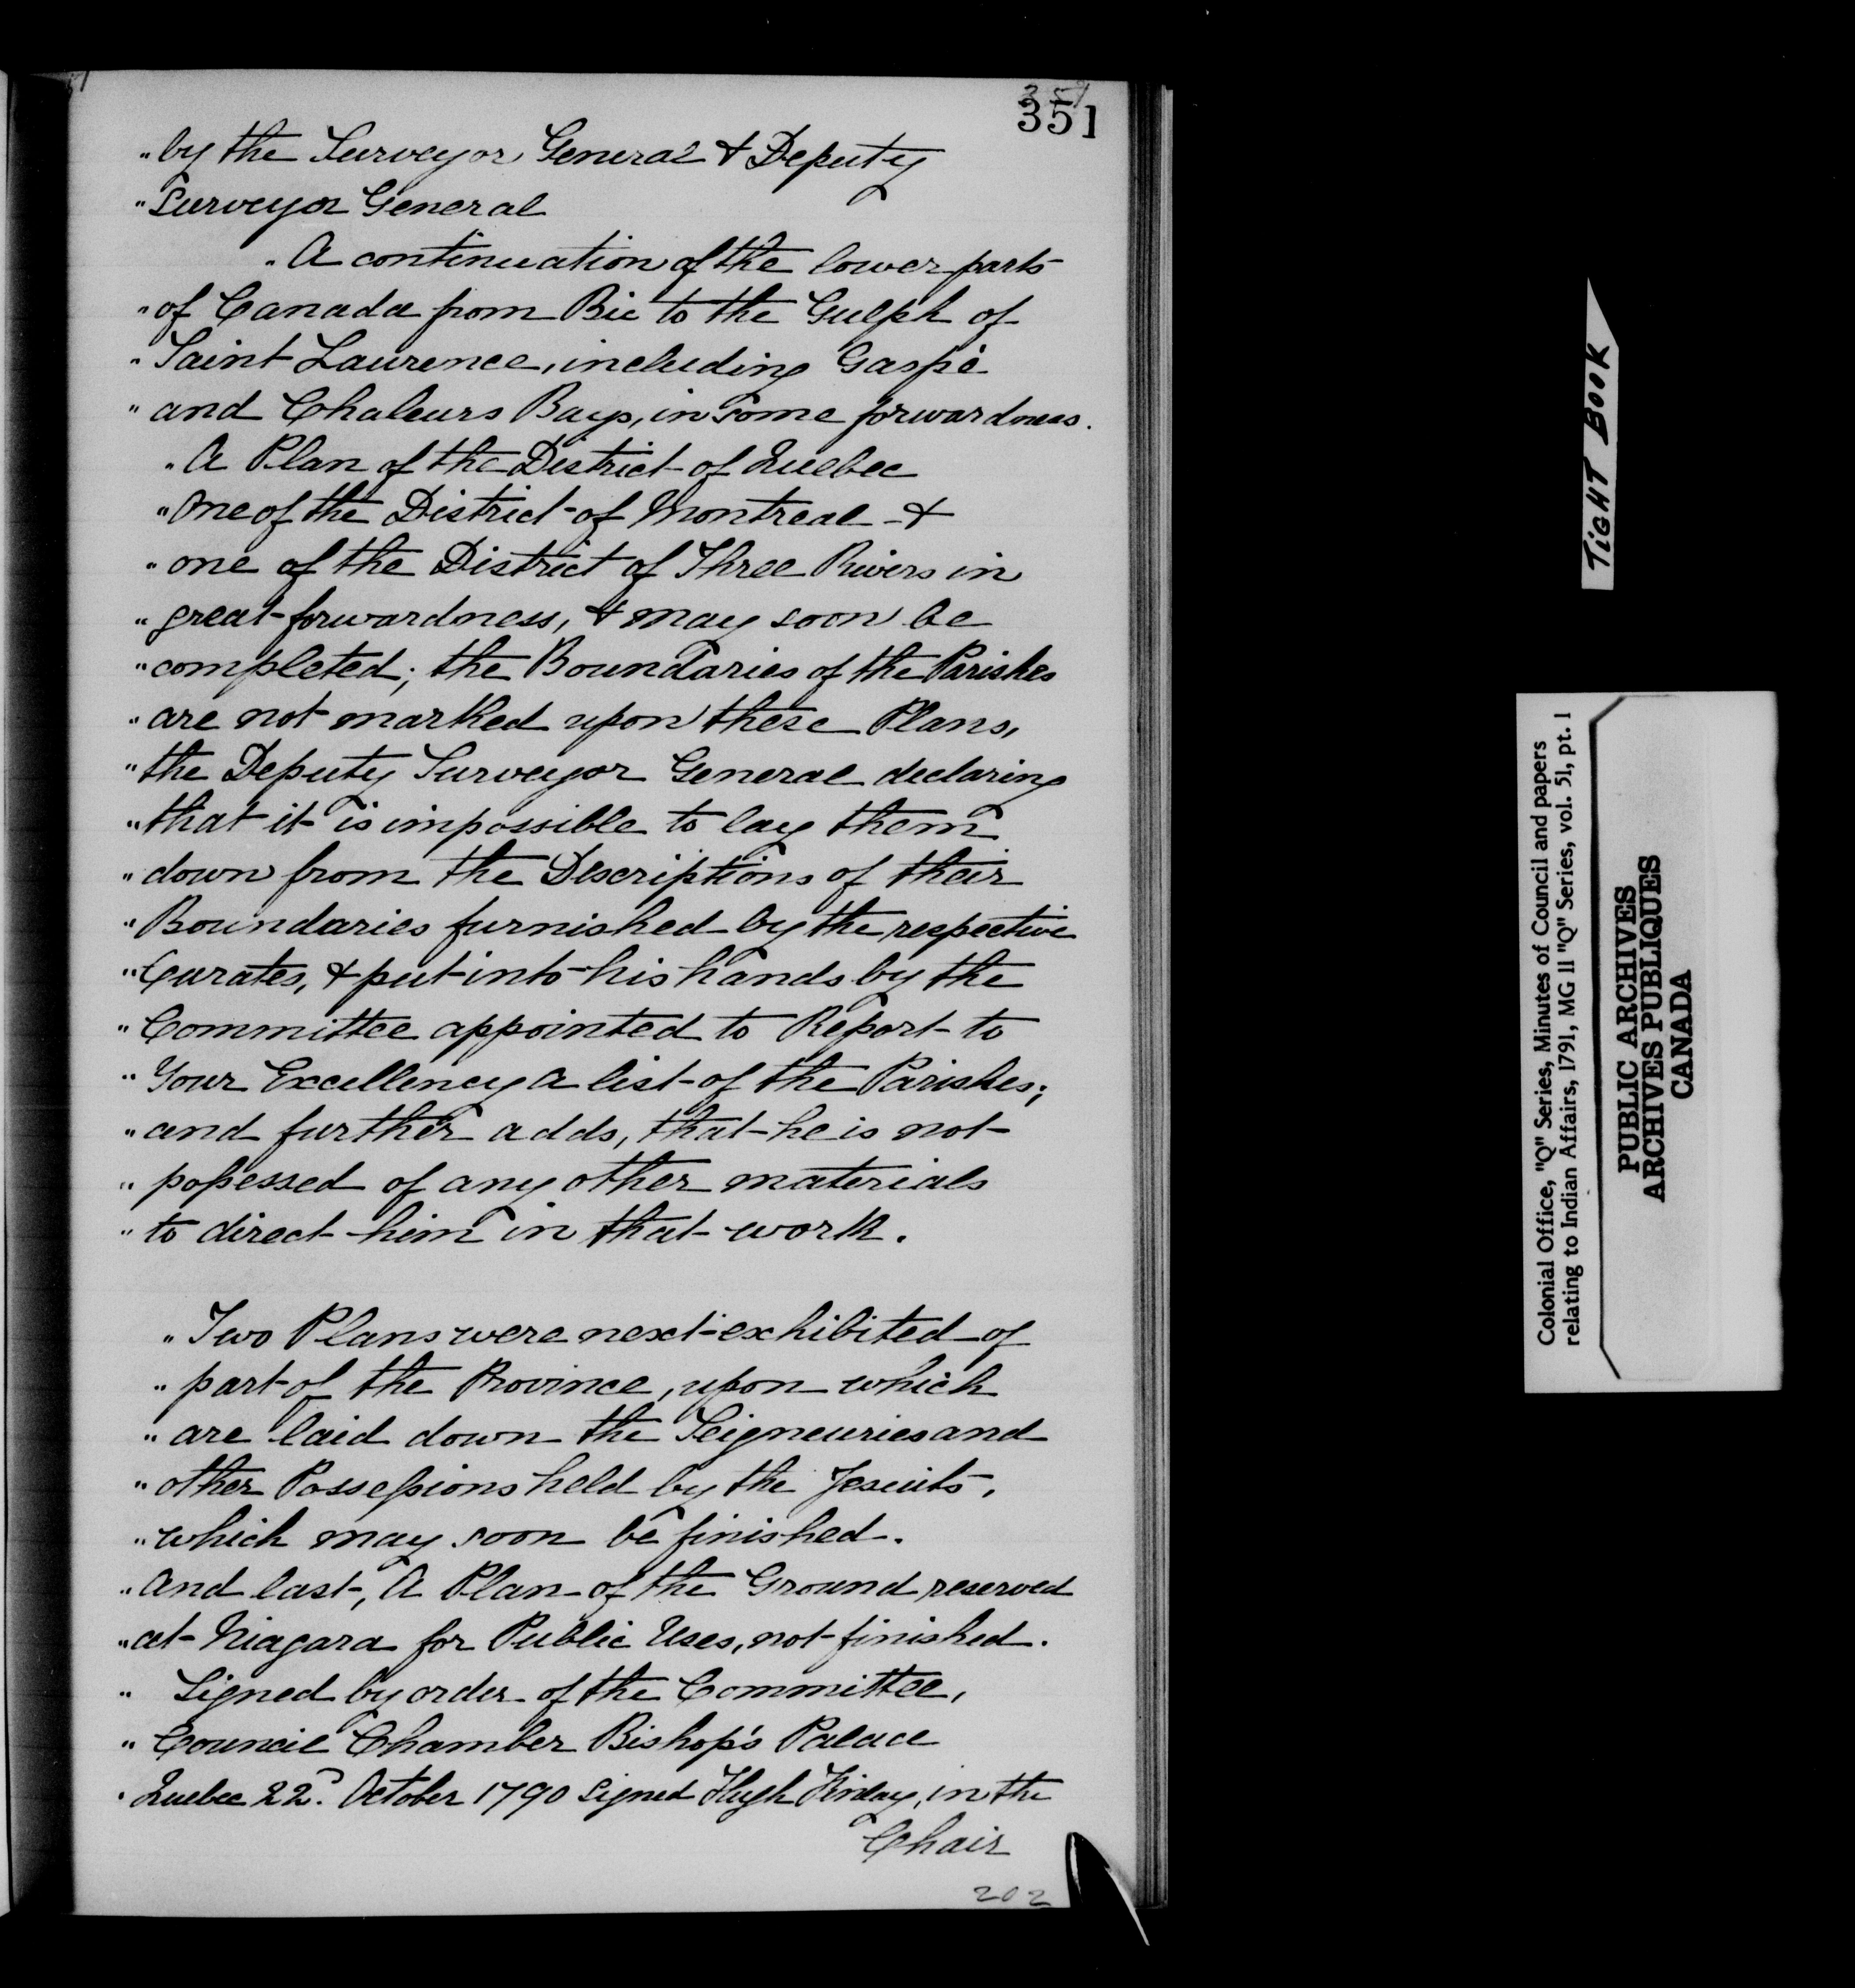 351
351
"by the Surveyor General & Deputy
"Surveyor General
"A continuation of the lower parts
"of Canada from Bic to the Gulph of
"Saint Laurence, including Gaspé
"and Chaleurs Bays, in some forwardness.
"A Plan of the District of Quebec
"One of the District of Montreal &
"one of the District of Three Rivers in
"great forwardness, & may soon be
"completed; the Boundaries of the Parishes
"are not marked upon these Plans,
"the Deputy Surveyor General declaring
"that it is impossible to lay them
"down from the Descriptions of their
"Boundaries furnished by the respective
"Curates, & put into his hands by the
"Committee appointed to Report to
"Your Excellency a list of the Parishes;
"and further adds, that he is not
"poſsessed of any other materials
"to direct him in that work.
"Two Plans were next exhibited of
"part of the Province, upon which
"are laid down the Seigneuries and
"other Posseſsions held by the Jesuits,
"which may soon be finished.
"And last, A Plan of the Ground reserved
"at Niagara for Public Uses, not finished.
"Signed by order of the Committee,
"Council Chamber Bishop's Palace
"Quebec 22d. October 1790 Signed Hugh Finlay, in the
Chair
202
TIGHT BOOK
Colonial Office, "Q" Series, Minutes of Council and papers
relating to Indian Affairs, 1791, MG 11 "Q" Series, vol. 51, pt. 1
PUBLIC ARCHIVES
ARCHIVES PUBLIQUES
CANADA